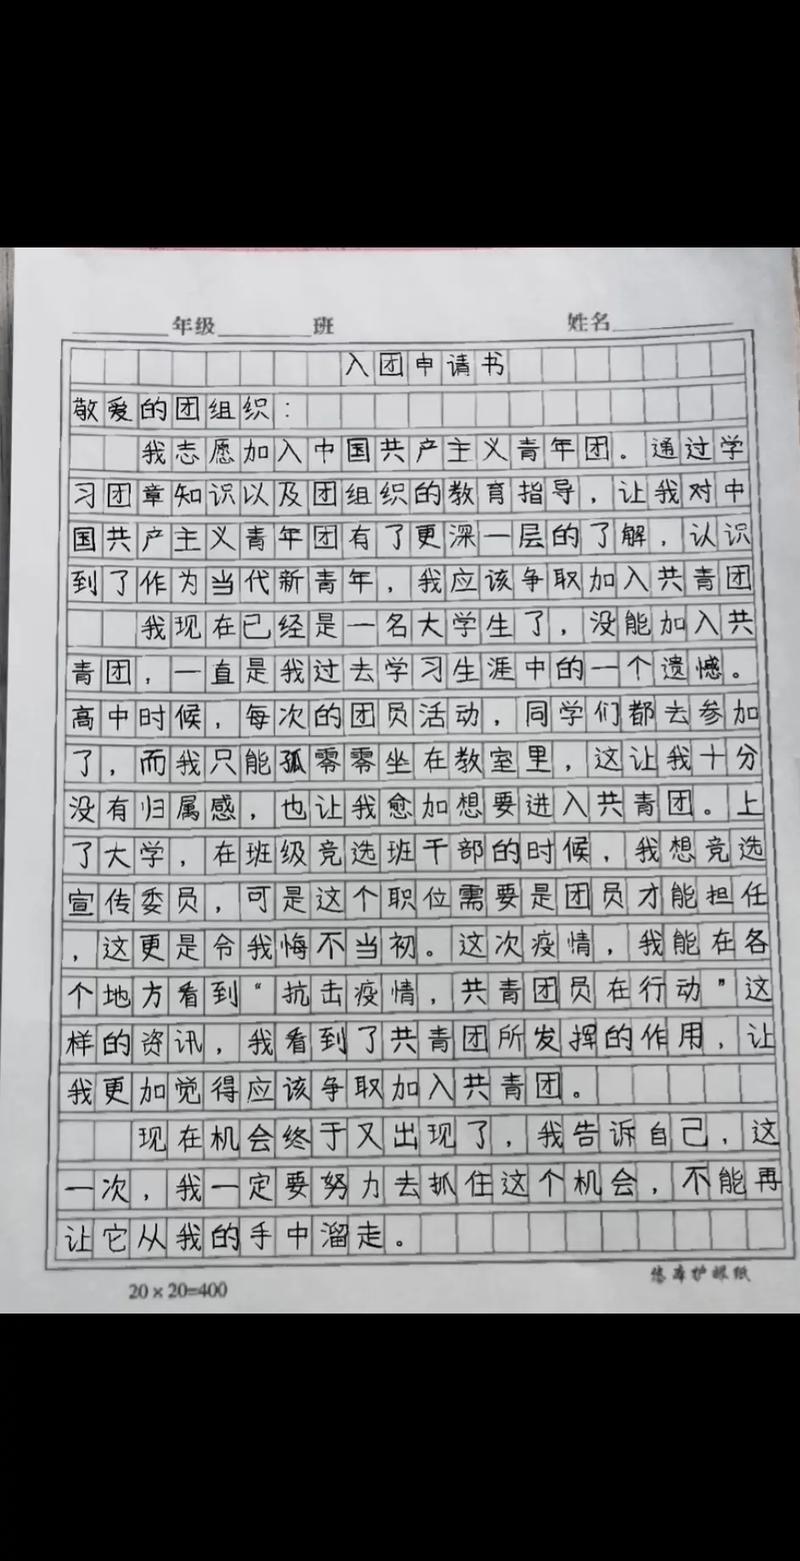 年级 班 姓名
入团申请书
敬爱的团组织：
我志愿加入中国共产主义青年团。通过学
习团章知识以及团组织的教育指导，让我对中
国共产主义青年团有了更深一层的了解，认识
到了作为当代新青年，我应该争取加入共青团
我现在已经是一名大学生了，没能加入共
青团，一直是我过去学习生涯中的一个遗憾。
高中时候，每次的团员活动，同学们都去参加
了，而我只能孤零零坐在教室里，这让我十分
没有归属感，也让我愈加想要进入共青团。上
了大学，在班级竞选班干部的时候，我想竞选
宣传委员，可是这个职位需要是团员才能担任
，这更是令我悔不当初。这次疫情，我能在各
个地方看到“抗击疫情，共青团员在行动”这
样的资讯，我看到了共青团所发挥的作用，让
我更加觉得应该争取加入共青团。
现在机会终于又出现了，我告诉自己，这
一次，我一定要努力去抓住这个机会，不能再
让它从我的手中溜走。
20×20=400 悠库护眼纸